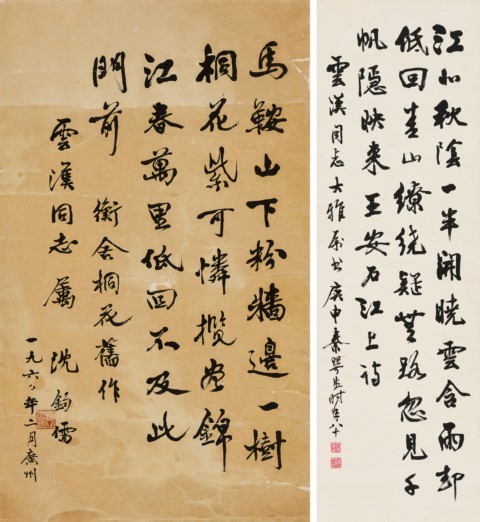 馬鞍山下粉牆邊一樹
桐花紫可憐攬盡錦
江春萬里低回不及此
門前 衡舍桐花舊作
雲漢同志屬 沈鈞儒
一九六〇年二月廣州
江北秋陰一半開曉雲含雨却
低回青山繚繞疑無路忽見千
帆隱映來 王安石江上詩
雲漢同志大雅屬书 庚申秦咢生时年八十